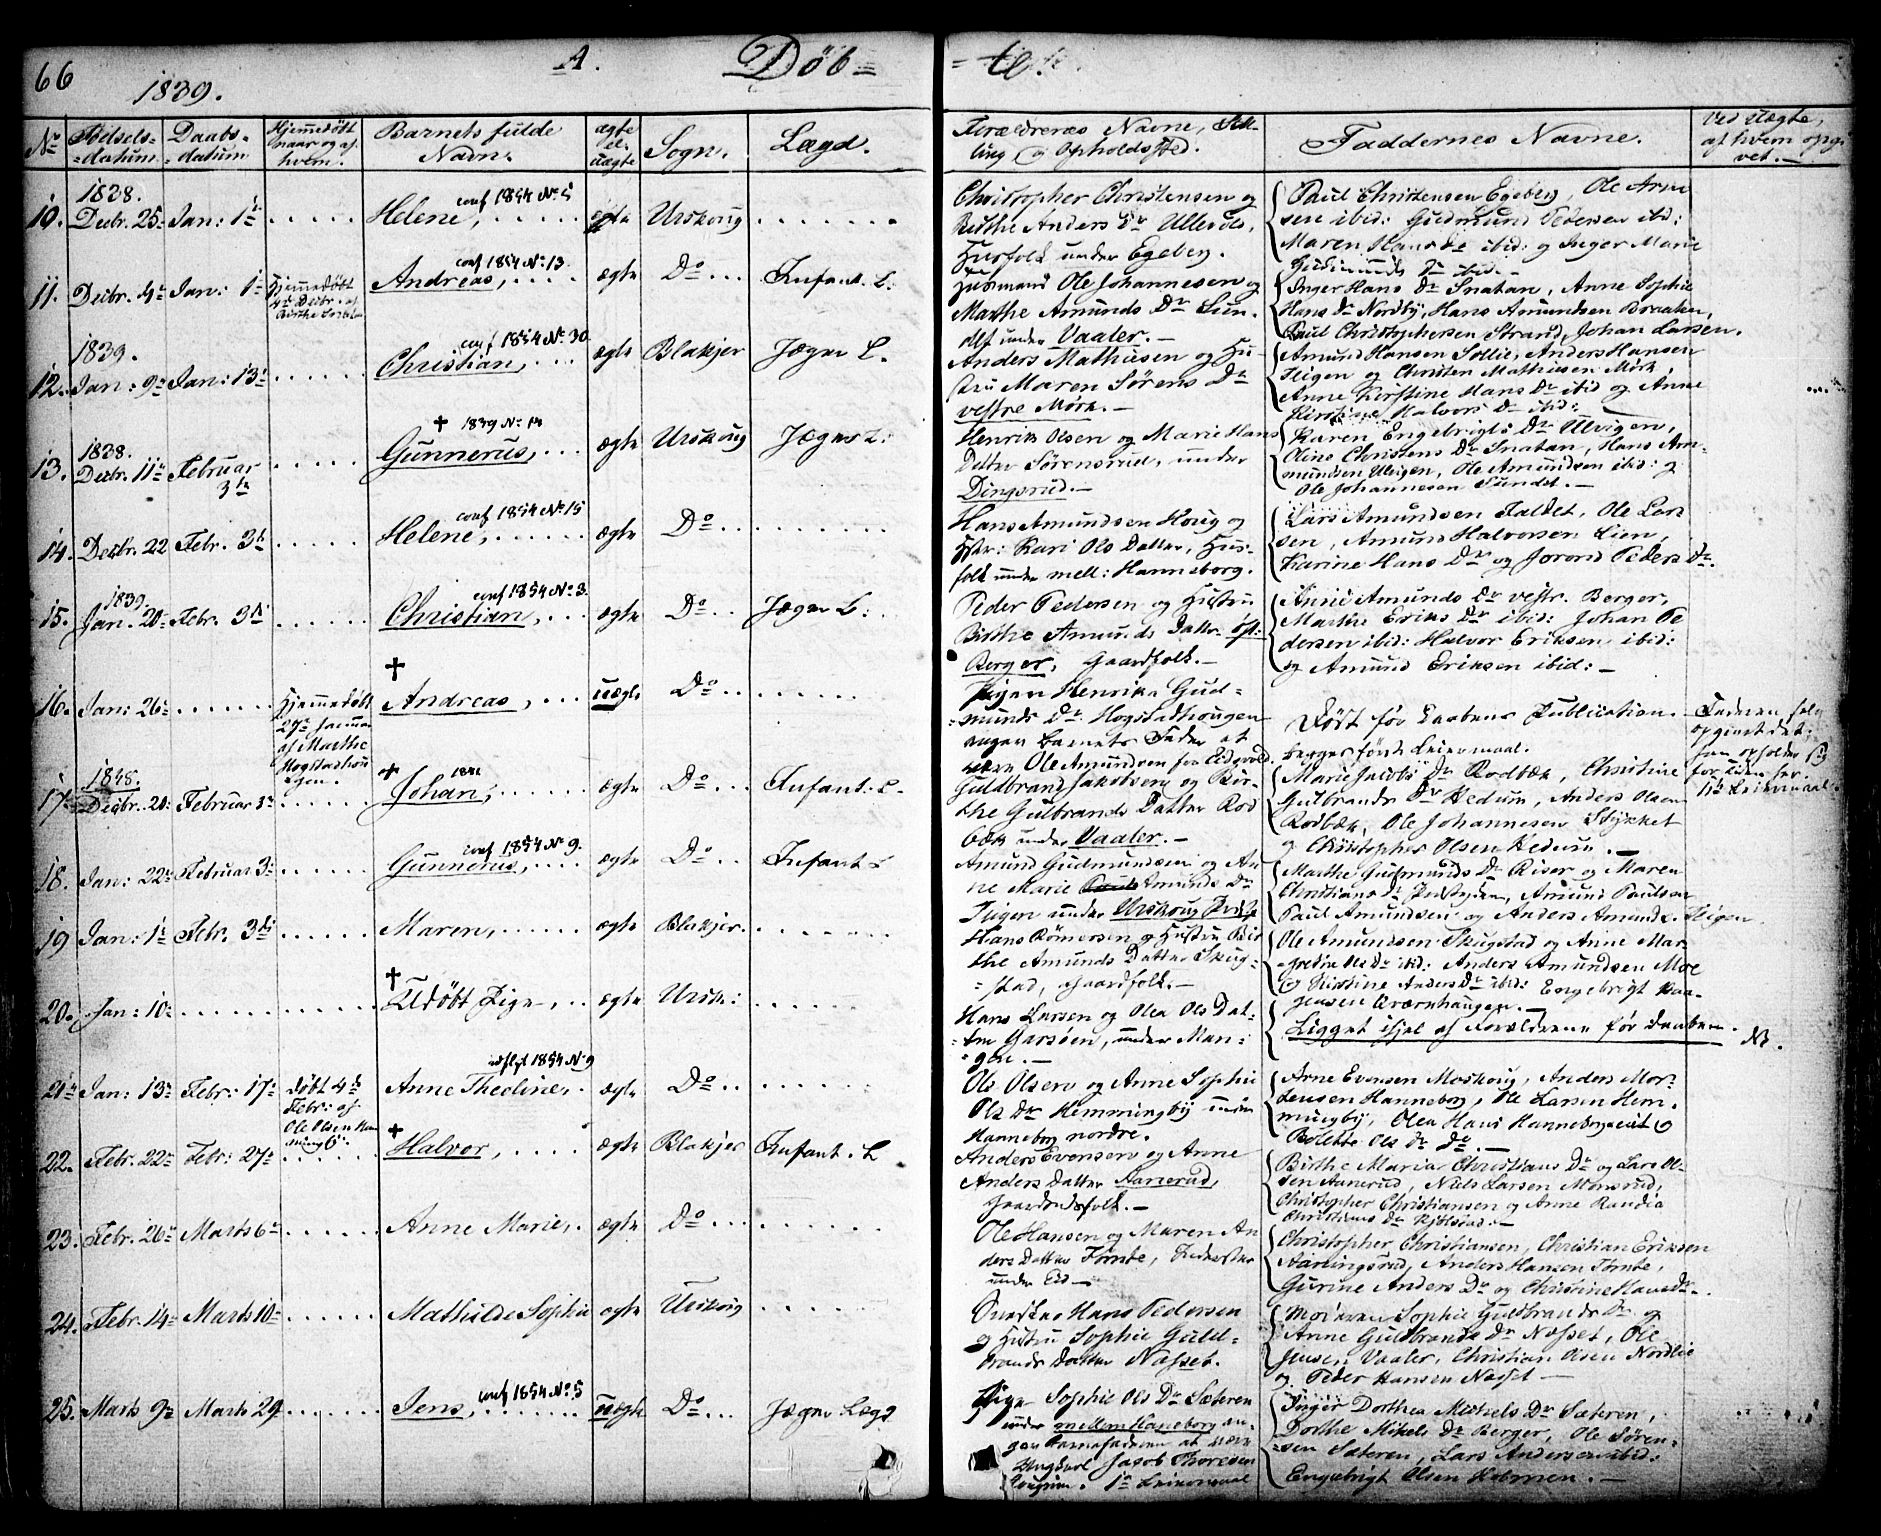 66
1839.
A.
Döb=
=te.
No
Födsels-
=datum.
Daabs-
=datum
Hjemmedöbt
naar og af
hvem.
Barnets fulde
Navn.
ægte
el.
uægte
Sogn.
Lægd.
Forældrenes Navne, Stil-
ling og Opholdssted.
Faddernes Navne.
Ved Uægte,
af hvem opgi-
vet.
10. 1838. Decbr. 25 Jan: 1 Helene, conf 1854 No 5 ægte Urskoug
Christopher Christensen og
Birthe Anders Dr Ullevold,
Husfolk under Egeberg.
Paul Christensen Egeberg, Ole Arne
sen ibid: Gudmund Pedersen ibid:
Maren Hans Dr ibid: og Inger Marie
Gudmunds Dr ibid.
11. Decbr. 4 Jan: 1
Hjemmedöbt
4 Decbr. af
Birthe
Andreas, conf 1854 No 13. ægte Do Infant. L:
Husmand Ole Johannesen og
Marthe Amunds Dr Lien-
under Vaaler.
Inger Hans Dr Snatan, Anne Sophie
Hans Dr Nordby, Hans Amundsen Braaten,
Paul Christophersen Strand, Johan Larsen.
12. 1839. Jan: 9 Jan: 13 Christian, conf 1854 No 30 ægte Blakjer Jæger L.
Anders Mathisen og Hu-
stru Maren Sörens Dr
vestre Mörk.
Amund Hansen Sollie, Anders Hansen
Heigen og Christen Mathisen Mörk,
Anne Kirstine Hans Dr ibid og Anne
Kirstine Halvors Dr ibid:
13. 1838. Decbr. 11 Februar 3 † 1839 No 14 Gunnerus, ægte Urskoug Jæger L:
Henrik Olsen og Marie Hans
Datter Sörensrud, under
Dingsrud.
Karen Engebrigts Dr Ulvigen,
Oline Christens Dr Snatan, Hans Am-
mundsen Ulvigen, Ole Amundsen ibid: og
Ole Johannesen Sundet.
14. Decbr. 22 Febr. 3 Helene, conf 1854 No 15 ægte Do
Hans Amundsen Houg og
Hstr: Kari Ols Datter, Hus-
folk under mell: Hanneborg.
Lars Amundsen Faldet, Ole Lar
sen, Amund Halvorsen Lien,
Karine Hans Dr og Jorond Peders Dr.
15. 1839. Jan. 20 Febr. 3 Christian, conf 1854 No 3. ægte Do Jæger L:
Peder Pedersen og Hustru
Birthe Amunds Datter öst:
Berger, Gaardfolk.
Anne Amunds Dr vestr. Berger,
Marthe Eriks Dr ibid: Johan Pe
dersen ibid: Halvor Eriksen ibid:
og Amund Eriksen ibid:
16. Jan: 26
Hjemmedöbt
27
af Marthe
Hogstadhou
gen.
† Andreas, uægte Do
Pigen Henrika Gud-
munds Dr Hogstadhougen
angav Barnets Fader at
være Ole Amundsen fra Eidsvold
Död för Daabens Publication.
begges förste Leiermaal.
Faderen selv
opgivet det:
17. 1838. Decbr. 20 Februar 3 † 1841 Johan, ægte Do Infant. L
Guldbrand Jakobsen og Bir-
the Gulbrands Datter Rod
bæk under Vaaler.
Marie Jacobs Dr Rodbæk, Christine
Gulbrands Dr Hedum, Anders Olsen
Rodbæk, Ole Johannesen Stykket
og Christopher Olsen Hedum.
18. Jan: 22 Februar 3 Gunnerus, conf 1854 No 9. ægte Do Infant L
Amund Gudmundsen og An
ne Marie Amunds Dr
Teigen under Urskoug Præste
Marthe Gudmunds Dr Riser og Maren
Christians Dr Amund Paulsen
Paul Amundsen og Anders Amunds. Teigen
19 Jan: 1 Febr. 3 Maren, ægte Blakjer.
Hans Römersen og Hustru Bir
the Amunds Datter Skug-
=stad, Gaardfolk.
Ole Amundsen Skugstad og Anne Mar-
=grethe Ols Dr ibid: Anders Amundsen Moe
og Kirstine Anders Dr ibid: Engebrigt Haa-
gensen Kværnhaugen.
20. Jan: 10 † Udöbt Pige, ægte Ursk:
Hans Larsen og Olea Ols Dat-
ter Garsöen, under Man-
=gen.
Ligget ihjel af Forældrene för Daaben.
NB.
21 Jan: 13 Febr: 17
döbt 4
Febr: af
Ole Olsen Hem
mingby.
Anne Theoline, udflyt 1854 No 9 ægte Do
Ole Olsen og Anne Sophie
Ols Dr Hemmingby under
Hanneborg nordre.
Arne Evensen Moskoug, Anders Mor-
tensen Hanneborg, Ole Larsen Hem-
mingby, Olea Hans Hanneborgeiet og
Bolette Ols Dr Do
22. Febr. 22 Febr: 27 † Halvor, ægte Blakjer Infant. L
Anders Evensen og Anne
Anders Datter Aanerud,
Gaardmandsfolk.
Birthe Maria Christians Dr og Lars Ol-
sen Aanerud, Niels Larsen Monsrud,
Christopher Christiansen og Anne Randia
Christians Dr Kjölstad.
23. Febr. 26 Marts 6 Anne Marie, ægte Do
Ole Hansen og Maren An
ders Datter Tömte, Inderster
under Eid
Christopher Christiansen, Christian Eriksen
Aarlingsrud, Anders Hansen Tömte,
Gurine Anders Dr og Christine Hans Dr.
24. Febr. 14 Marts 10 Mathilde Sophie ægte Urskoug
Hans Pedersen
og Hustru Sophie Guld-
brands Datter Næsset.
Moderen Sophie Guldbrands Dr og
Anne Guldbrands Dr Næsset, Ole
Jensen Vaaler, Christian Olsen Nordlie
og Peder Hansen Næsset
25. Marts 9 Marts 29 Jens, conf 1854 No 5 uægte Do Jæger Lægd
Pige Sophie Ols Dr Sæteren
under mellem Haneborg an-
gav Barnefaderen at være
Ungkarl Jacob Thoresen
1ste Leiermaal
Inger Dorthea Mikkels Dr Sæteren,
Dorthe Mikels Dr Berger, Ole Sören-
sen Sæteren, Lars Andersen ibid:
Engebrigt Olsen Holmen.